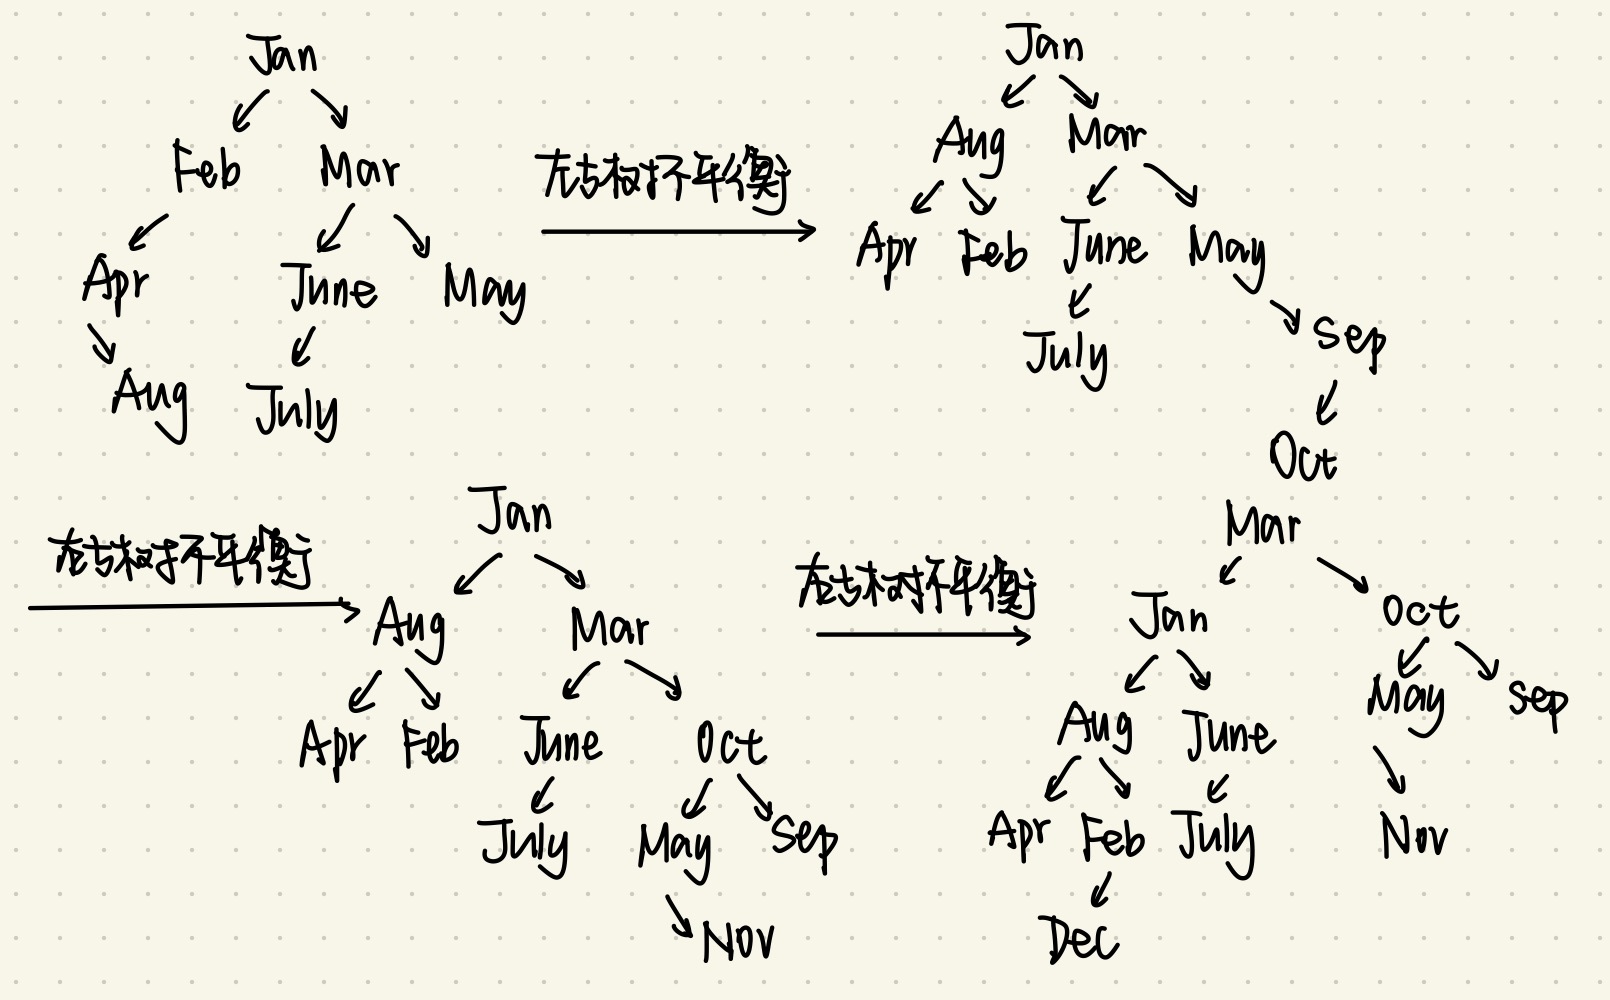 Jan
Feb Mar
Apr June May
Aug July
左右树不平衡
Jan
Aug Mar
Apr Feb June May
July Sep
Oct
左右树不平衡
Jan
Aug Mar
Apr Feb June Oct
July May Sep
Nov
左右树不平衡
Mar
Jan Oct
Aug June May Sep
Apr Feb July Nov
Dec